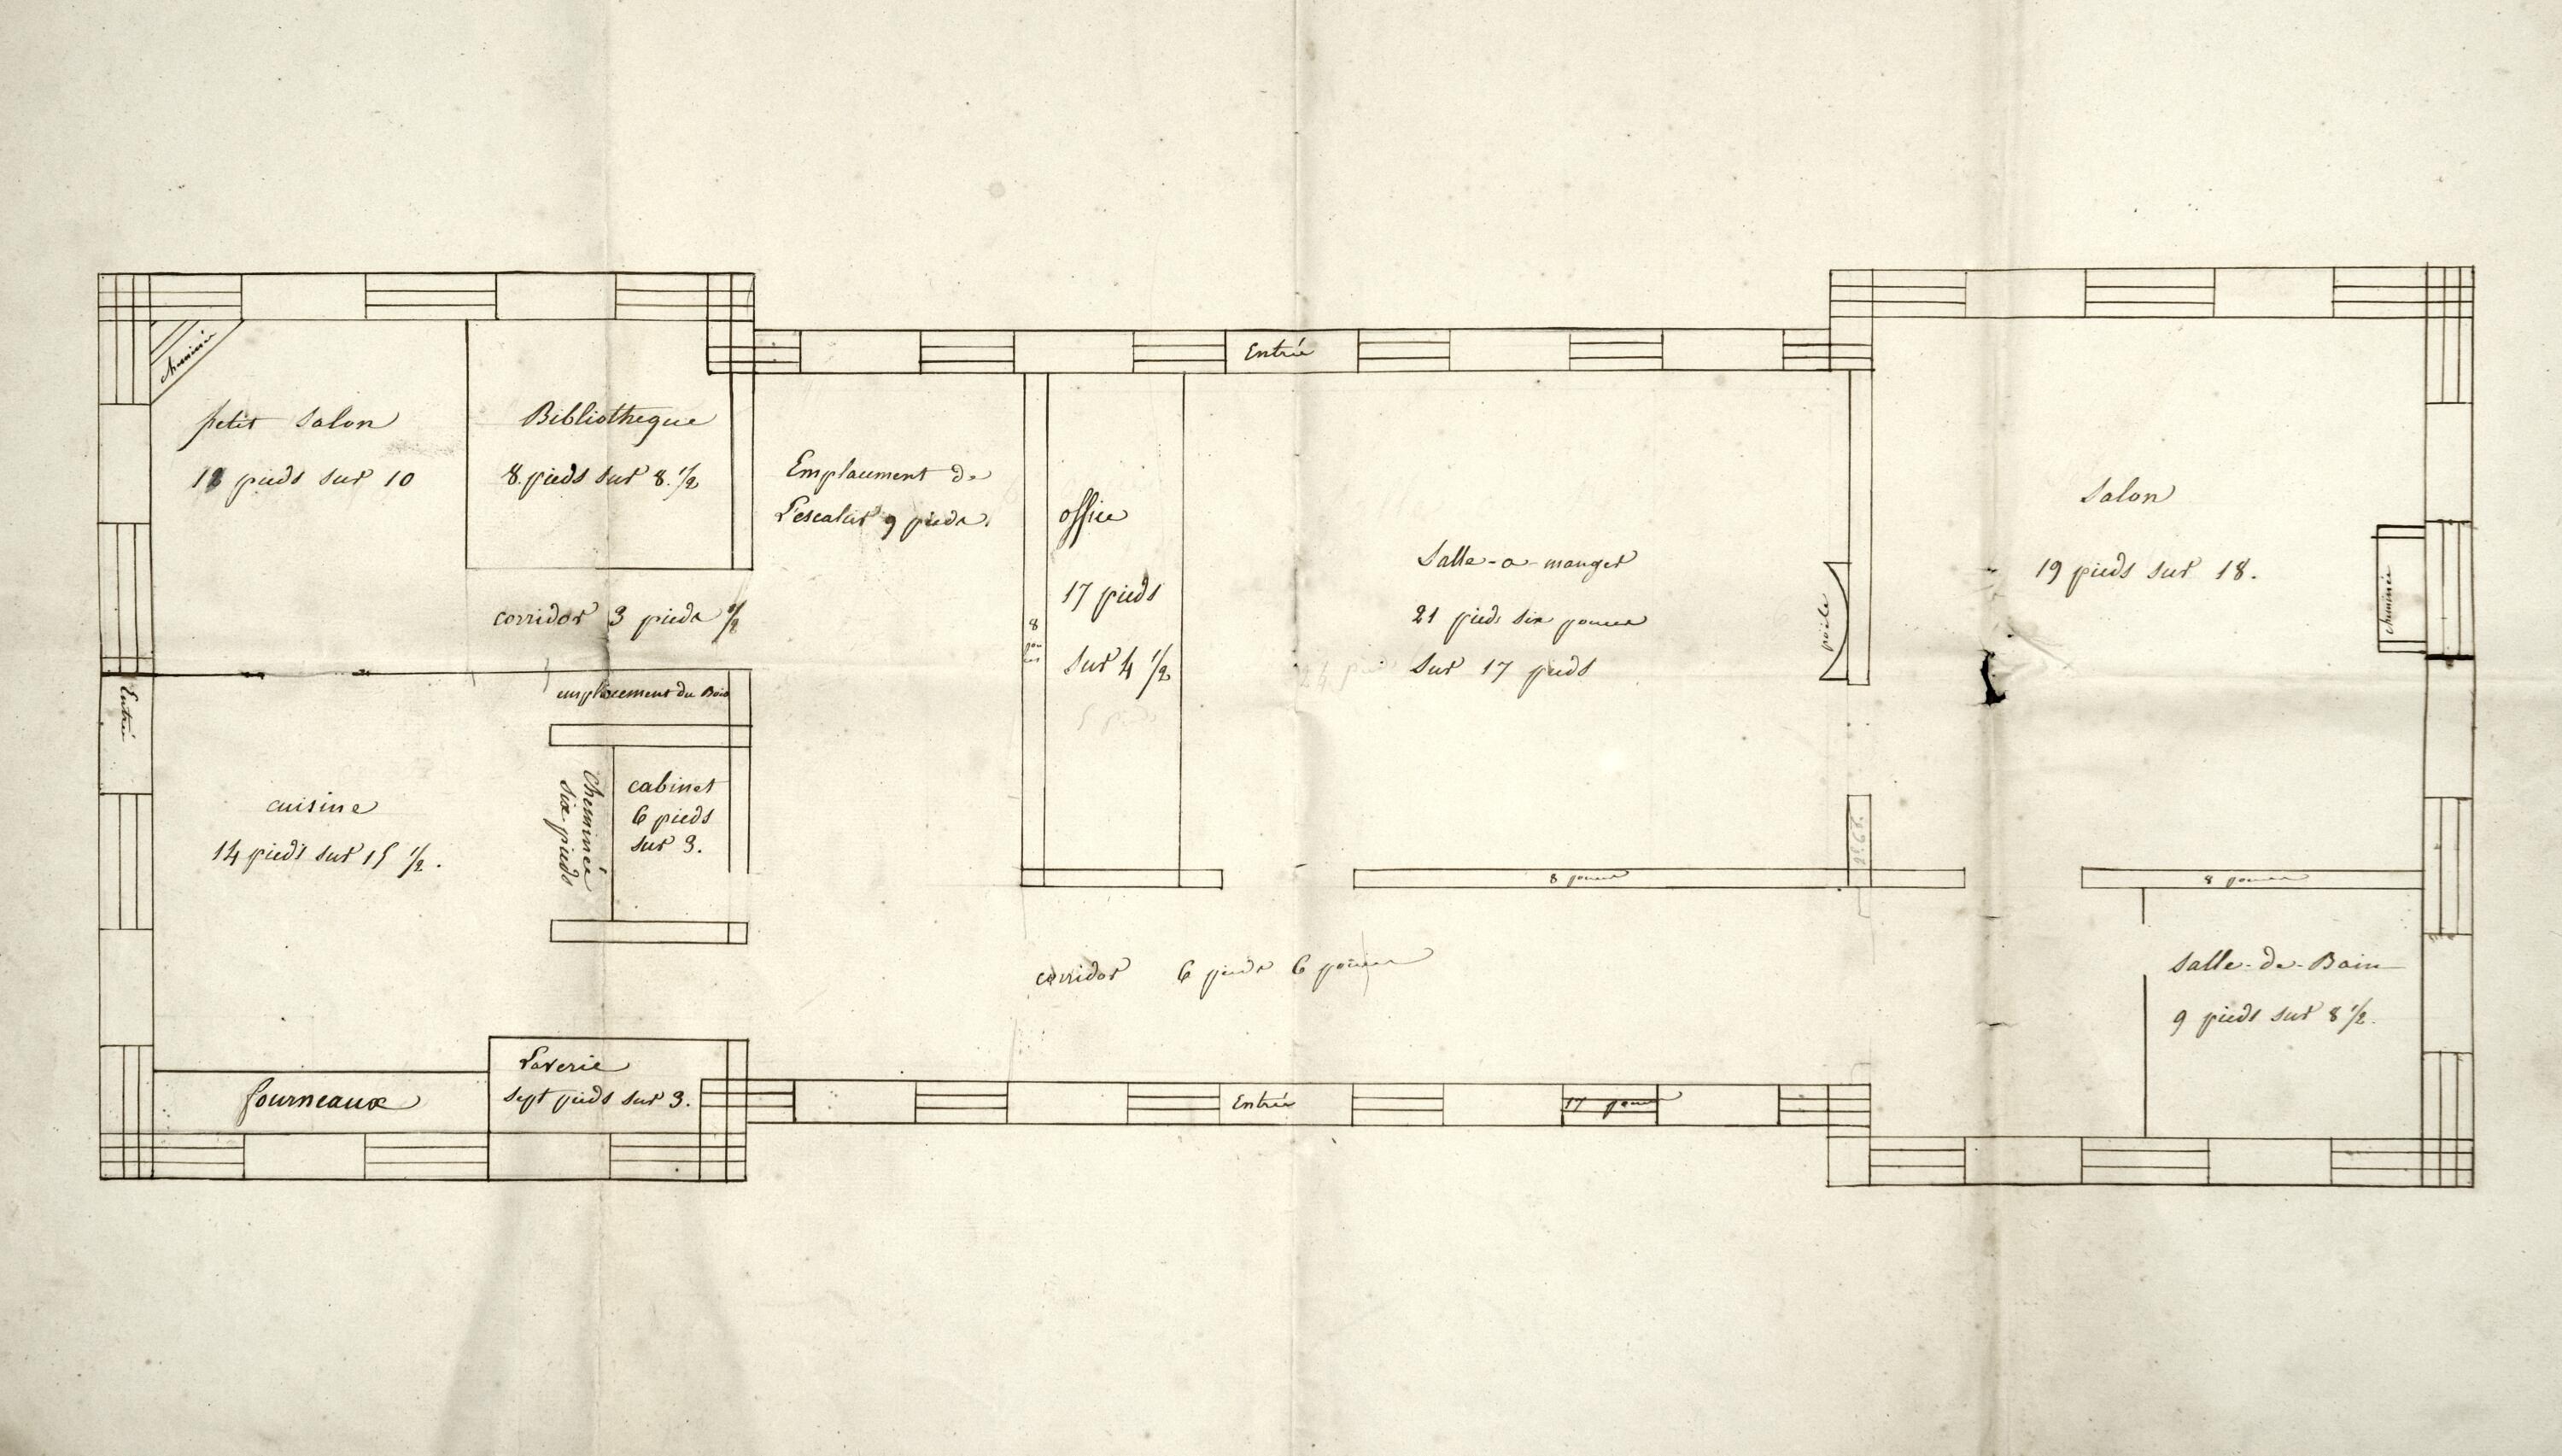 cheminée
petit Salon
12 pieds sur 10
Bibliotheque
8 pieds sur 8. 1/2
corridor 3 pieds 1/2
Emplacement de
L'escalier 9 pieds.
8
pou
ces
office
17 pieds
sur 4 1/2
5 pieds
Entrée
Salle-a-manger
21 pieds six pouces
Sur 17 pieds
poële
Salon
19 pieds sur 18.
cheminée
Entrée
emplacement du Bois
cuisine
14 pieds sur 15 1/2.
Cheminée
six pieds
cabinet
6 pieds
sur 3.
8 pouces
8 pouces
corridor 6 pieds 6 pouces
Salle-de-Bain
9 pieds sur 8 1/2.
fourneaux
Laverie
sept pieds sur 3.
Entrée
17 pouces